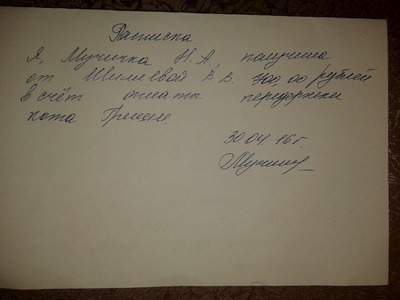 Расписка
Я, Мучичка Н. А получила
от Шилевой В. В. 700,00 рублей
в счёт оплаты передержки
кота Гресене
30.04.16г.